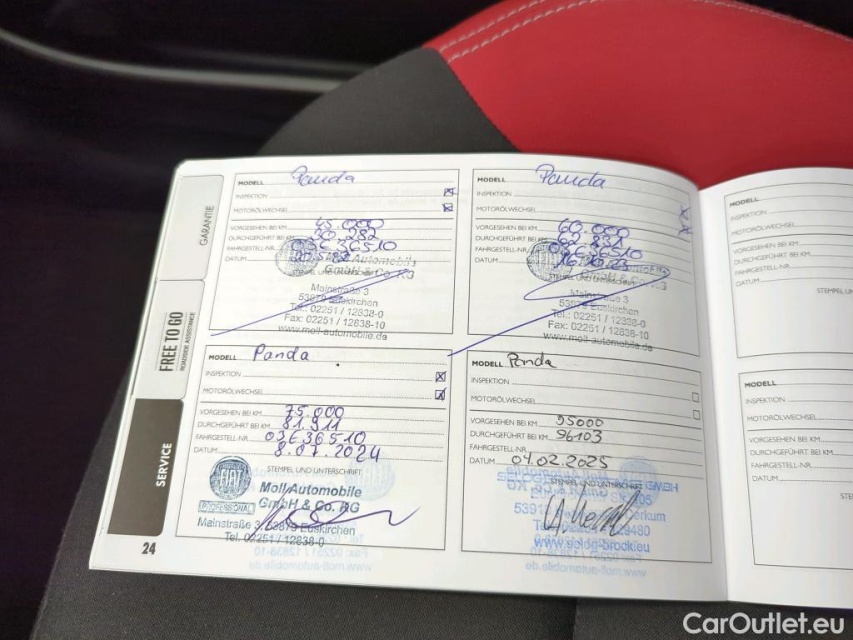 GARANTIE
FREE TO GO
ROADSIDE ASSISTANCE
SERVICE
24
MODELL Panda
INSPEKTION
MOTORÖLWECHSEL
VORGESEHEN BEI KM 45.000
DURCHGEFÜHRT BEI KM
FAHRGESTELL-NR. 36510
DATUM
GmbH & Co. KG
Mainstraße 3
Euskirchen
Tel.: 02251 / 12838-0
Fax: 02251 / 12838-10
www.moll-automobile.de
MODELL Panda
INSPEKTION
MOTORÖLWECHSEL
VORGESEHEN BEI KM 60.000
DURCHGEFÜHRT BEI KM
FAHRGESTELL-NR. 36510
DATUM
Mainstraße 3
Euskirchen
Tel.: 02251 / 12838-0
Fax: 02251 / 12838-10
www.moll-automobile.de
MODELL Panda
INSPEKTION
MOTORÖLWECHSEL
VORGESEHEN BEI KM 75.000
DURCHGEFÜHRT BEI KM 81.911
FAHRGESTELL-NR. 03E36510
DATUM 8.07.2024
STEMPEL UND UNTERSCHRIFT
FIAT
PROFESSIONAL
Moll Automobile
GmbH & Co. KG
Mainstraße 3, 53879 Euskirchen
Tel. 02251 / 12838-0
MODELL Panda
INSPEKTION
MOTORÖLWECHSEL
VORGESEHEN BEI KM 95000
DURCHGEFÜHRT BEI KM 96103
FAHRGESTELL-NR.
DATUM 04.02.2025
STEMPEL UND UNTERSCHRIFT
MODELL
INSPEKTION
MOTORÖLWECHSEL
VORGESEHEN BEI KM
DURCHGEFÜHRT BEI KM
FAHRGESTELL-NR.
DATUM
STEMPEL
MODELL
INSPEKTION
MOTORÖLWECHSEL
VORGESEHEN BEI KM
DURCHGEFÜHRT BEI KM
FAHRGESTELL-NR.
DATUM
STEMPEL
CarOutlet.eu